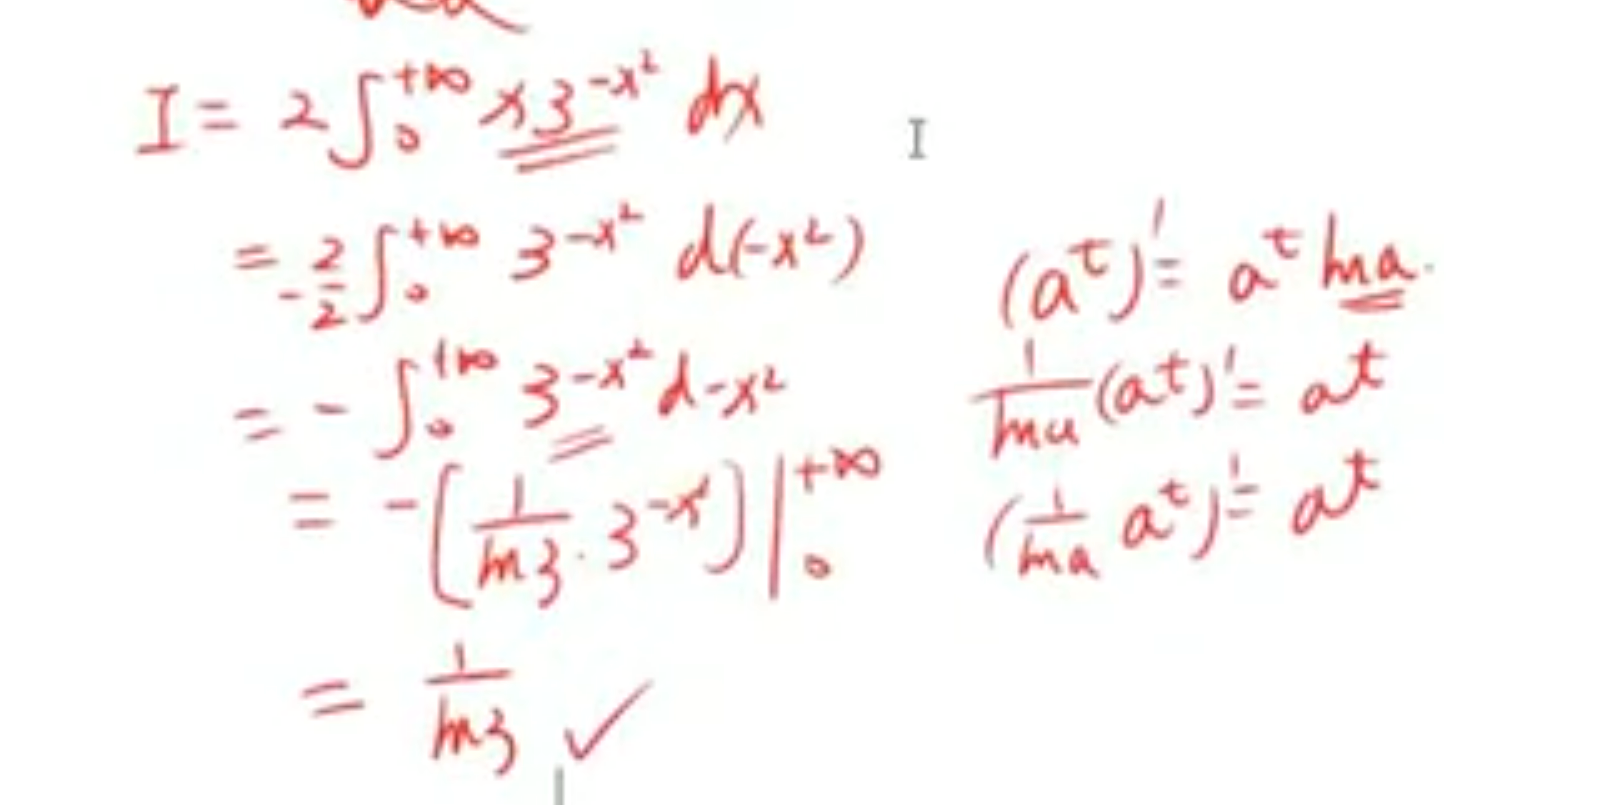 I = 2∫₀^{+∞} x3^{-x²} dx
= -2/2 ∫₀^{+∞} 3^{-x²} d(-x²)
= -∫₀^{+∞} 3^{-x²} d-x²
= -(1/ln3 · 3^{-x²})|₀^{+∞}
= 1/ln3 ✓
(a^t)' = a^t lna.
1/lna (a^t)' = a^t
(1/lna a^t)' = a^t